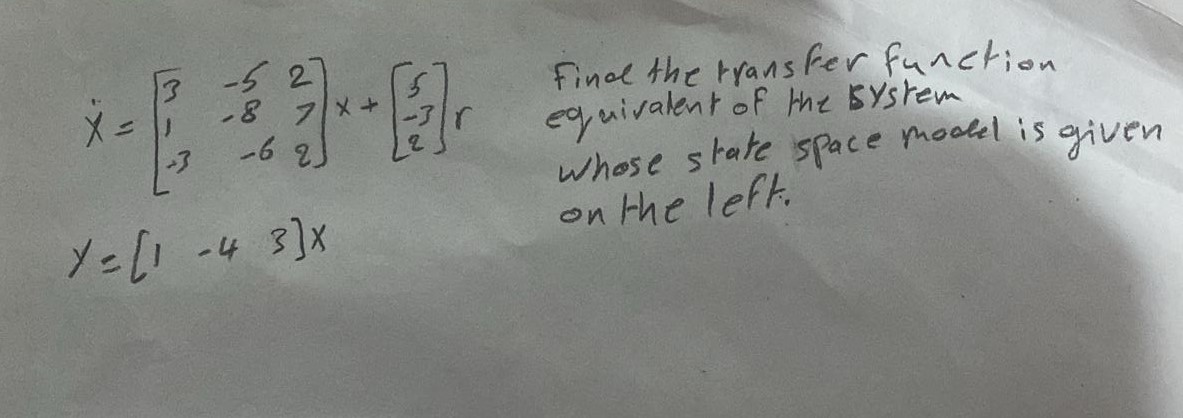 ẋ = [3 -5 2; 1 -8 7; -3 -6 2] x + [5; -3; 2] r
y = [1 -4 3]x
Find the transfer function
equivalent of the system
whose state space model is given
on the left.